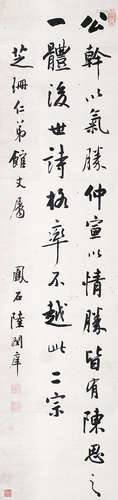 公幹以氣勝仲宣以情勝皆有陳思之
一體後世詩格率不越此二宗
芝珊仁弟館丈屬
鳳石陸潤庠